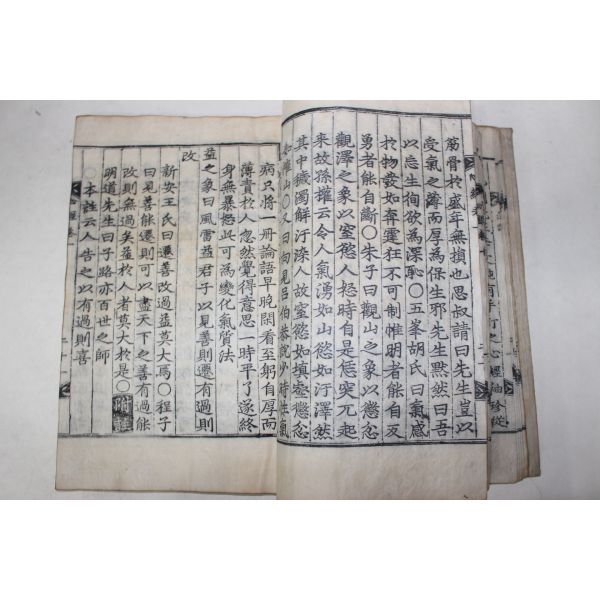 筋骨於盛年無損也思叔請曰先生豈以
受氣之薄而厚爲保生邪先生黙然曰吾
以忘生徇欲爲深恥○五峯胡氏曰氣感
於物發如奔霆狂不可制惟明者能自反
勇者能自斷○朱子曰觀山之象以懲忿
觀澤之象以窒慾人怒時自是恁突兀起
來故孫權云令人氣湧如山慾如汙澤然
其中穢濁解汙染人故窒慾如填壑懲忿
山○又曰向見呂伯恭說少時性氣
病只將一冊論語早晩閑看至躬自厚而
薄責於人忽然覺得意思一時平了遂終
身無暴怒此可爲變化氣質法
益之象曰風雷益君子以見善則遷有過則
改
新安王氏曰遷善改過益莫大焉○程子
曰見善能遷則可以盡天下之善有過能
改則無過矣益於人者莫大於是○附註
明道先生曰子路亦百世之師
○本註云人告之以有過則喜